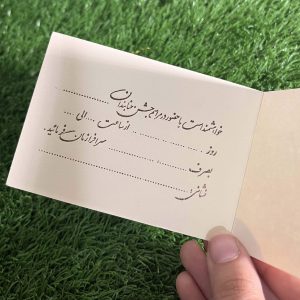 خواهشمند است با حضور در مراسم جشن حنابندان ..........
روز .......... از ساعت ..... الی .....
بصرف .......... سرافرازمان فرمائید.
نشانی: ..........